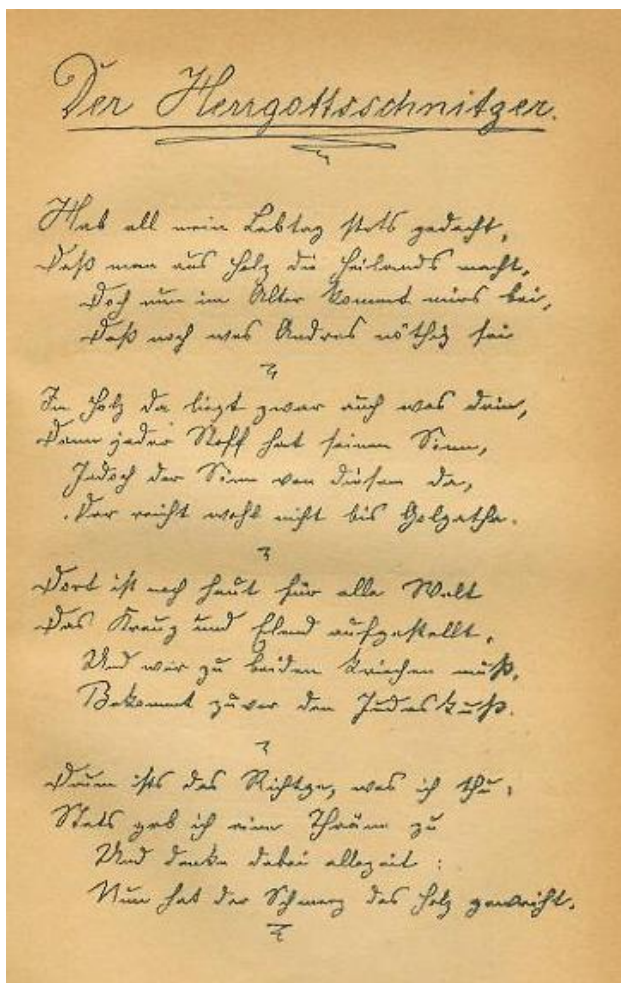 Der Herrgottsschnitzer.
Hab all mein Lebtag stets gedacht,
Daß man aus Holz die Heilands macht,
Doch nun im Alter kommt mirs bei,
Daß noch was Andres nöthig sei
In Holz da liegt zwar auch was drin,
Denn jeder Stoff hat seinen Sinn,
Jedoch der Sinn von diesem da,
Der reicht wohl nicht bis Golgatha.
Dort ist noch heut für alle Welt
Das Kreuz und Elend aufgestellt,
Und wer zu beiden kriechen muß,
Bekommt zuvor den Judaskuß.
Drum ists das Richtge, was ich thu:
Stets geb ich eine Thräne zu
Und denke dabei allezeit:
Nun hat der Schmerz das Holz geweiht.